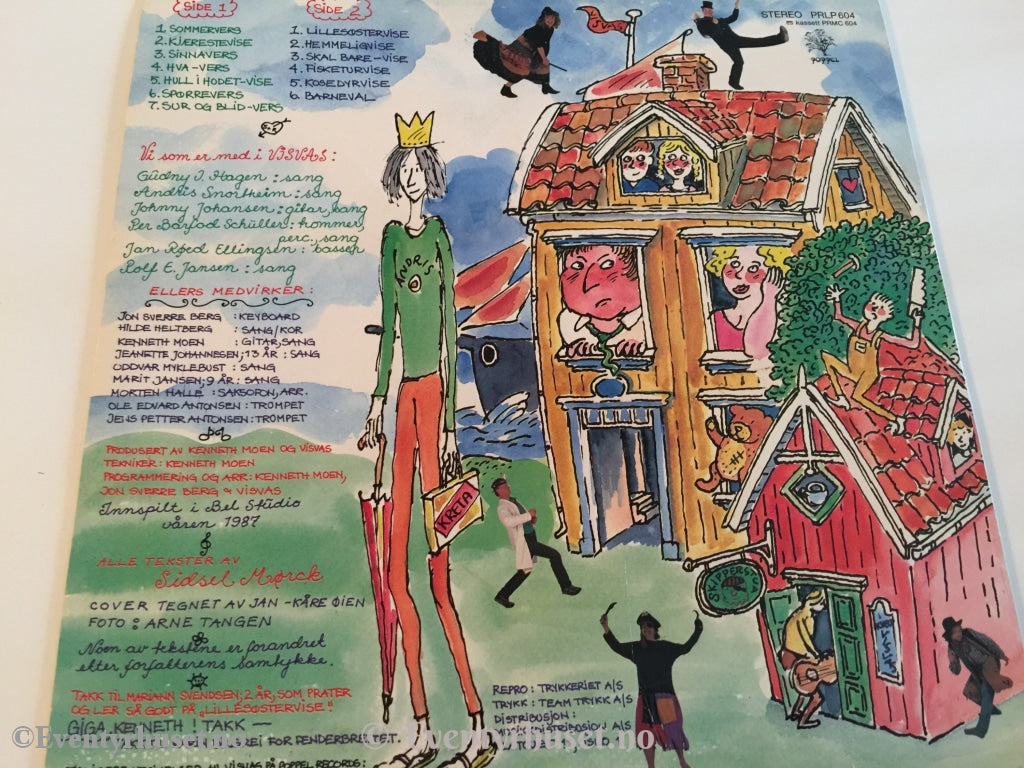 SIDE 1
1. SOMMERVERS
2. KJÆRESTEVISE
3. SINNAVERS
4. HVA-VERS
5. HULL I HODET-VISE
6. SPØRREVERS
7. SUR OG BLID-VERS
SIDE 2
1. LILLESØSTERVISE
2. HEMMELIGVISE
3. SKAL BARE-VISE
4. FISKETURVISE
5. KOSEDYRVISE
6. BARNEVAL
STEREO PRLP 604
kassett PRMC 604
POPPEL
VISVAS
Vi som er med i VISVAS:
Gudny I. Hagen : sang
Andris Snortheim : sang
Johnny Johansen : gitar, sang
Per Barfod Schüller : trommer,
perc., sang
Jan Roed Ellingsen : basser
Rolf E. Jansen : sang
ELLERS MEDVIRKER :
JON SVERRE BERG : KEYBOARD
HILDE HELTBERG : SANG/KOR
KENNETH MOEN : GITAR, SANG
JEANETTE JOHANNESEN; 13 ÅR : SANG
ODDVAR MYKLEBUST : SANG
MARIT JANSEN; 9 ÅR : SANG
MORTEN HALLE : SAKSOFON, ARR.
OLE EDVARD ANTONSEN : TROMPET
JENS PETTER ANTONSEN : TROMPET
PRODUSERT AV KENNETH MOEN OG VISVAS
TEKNIKER : KENNETH MOEN
PROGRAMMERING OG ARR : KENNETH MOEN,
JON SVERRE BERG & VISVAS
Innspilt i Bel Studio
våren 1987
ALLE TEKSTER AV
Sidsel Mørck
COVER TEGNET AV JAN-KÅRE ØIEN
FOTO : ARNE TANGEN
Noen av tekstene er forandret
etter forfatterens samtykke.
TAKK TIL MARIANN SVENDSEN; 2 ÅR, SOM PRATER
OG LER SÅ GODT PÅ "LILLESØSTERVISE"!
GIGA KENNETH! TAKK —
FOR FENDERBRETTET.
TIL VISVAS PÅ POPPEL RECORDS :
ANDRIS
KRETA
REPRO : TRYKKERIET A/S
TRYKK : TEAM TRYKK A/S
DISTRIBUSJON :
MUSIKKDISTRIBUSJON A/S
©Eventyrhuset.no
© Eventyrhuset.no